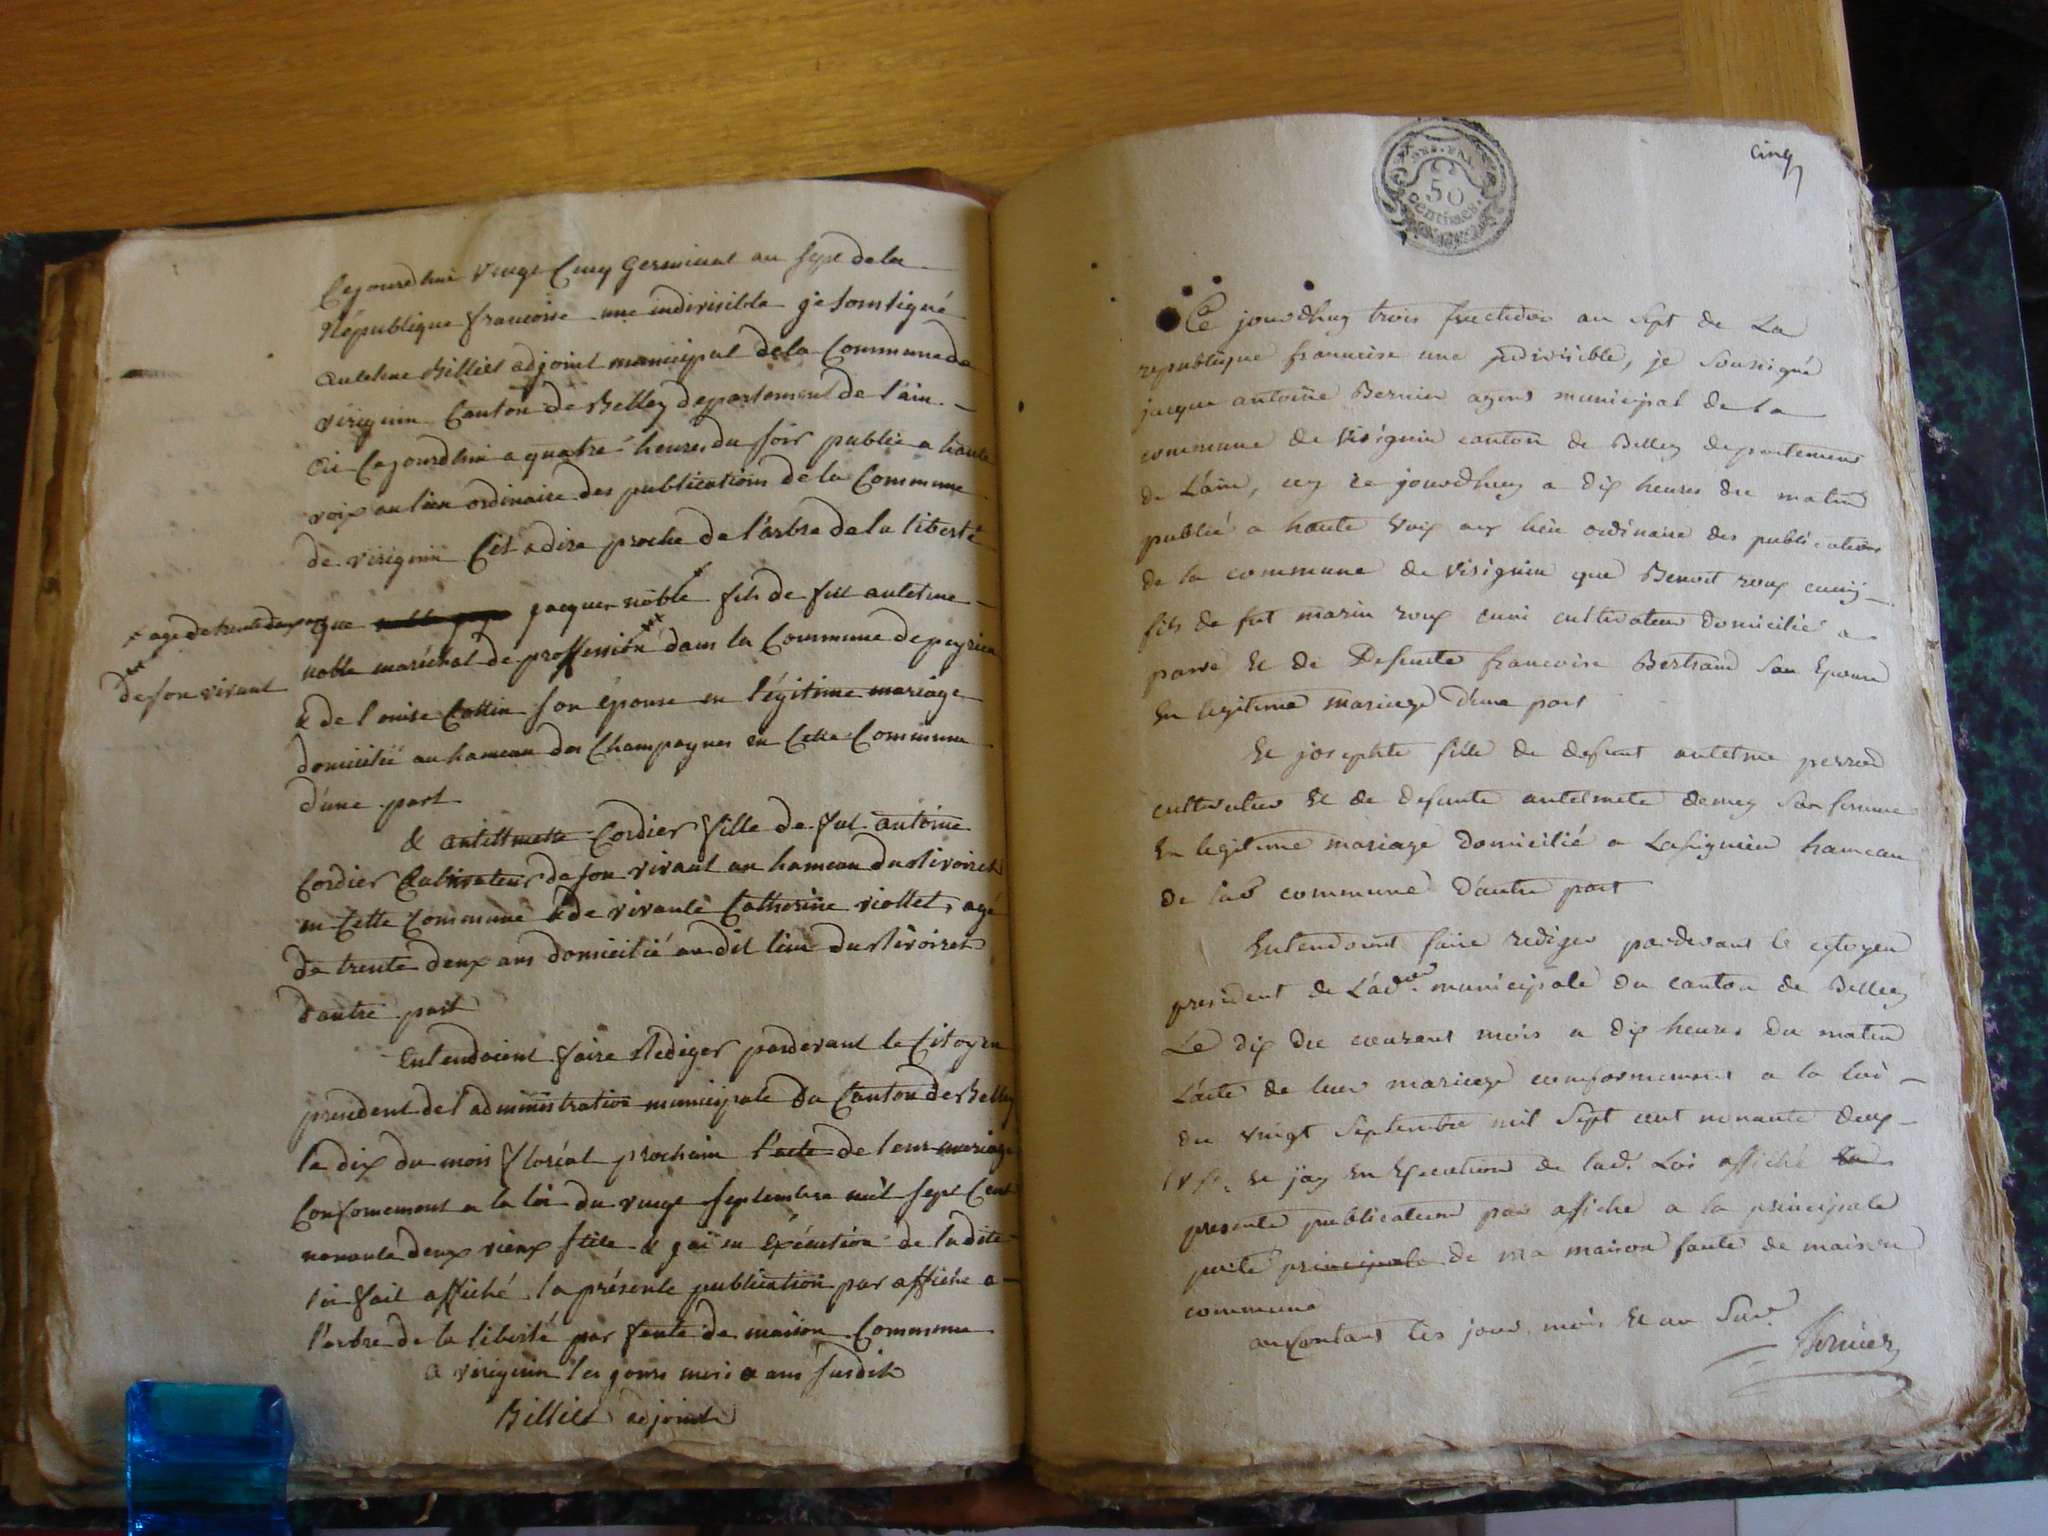 Cejourdhui vingt Cinq Germinal an sept de la
République francoise une indivisible je soussigné
antelme Billiet adjoint municipal de la Commune de
virignin Canton de Belley departement de l'ain
ai Cejourdhui a quatre heures du soir publié a haute
voix au lieu ordinaire des publications de la Commune
de virignin C'est a dire proche de l'arbre de la liberté
que jacques noble fils de feu antelme
× agé de trente deux ans
noble maréchal de proffession ×× dans la Commune de peyrieu
×× de son vivant
& de Louise Collin son épouse en légitime mariage
domicilié au hameau des Champagnes en Cette Commune
d'une part
& antelmette Cordier fille de fut antoine
Cordier Cultivateur de son vivant au hameau du Rivoiret
en Cette Commune & de vivante Catherine viollet, agé
de trente deux ans domicilié au dit lieu du Rivoiret
d'autre part
Entendoient faire Rediger pardevant le Citoyen
president de l'administration municipale du Canton de Belley
le dix du mois floréal prochain l'acte de leur mariage
Conformement a la loi du vingt septembre mil sept Cent
nonante deux vieux stile & j'ai en éxécution de ladite
loi fait affiché la présente publication par affiche a
l'arbre de la liberté par faute de maison Commune
a virignin les jours mois & ans susdits
Billiet adjoint
cinq
50
Centimes
Ce jourdhuy trois fructidor an sept de La
republique francoise une indivisible, je soussigné
jacque antoine Bernier agent municipal de la
commune de virignin canton de Belley departement
de L'ain, ay ce jourdhuy a dix heures du matin
publié a haute voix aux lieu ordinaire des publications
de la commune de virignin que Benoit roux cuni
fils de fut marin roux cuni cultivateur domicilié a
et de defunte francoise Bertrand son Epouse
En legitime mariage d'une part
Et josephte fille de defunt antelme perrod
cultivateur et de defunte antelmete demey son femme
En legitime mariage domicilié a Lassignieu hameau
de lad commune d'autre part
Entendoint faire rediger pardevant le cytoyen
president de L'ad.on municipale du canton de Belley
Le dix du courant mois a dix heures du matin
L'acte de leur mariage conformement a la loi
du vingt septembre mil sept cent nonante deux
(v.s. et jay En Execution de lad. Loi affiché la
presente publication par affiche a la principale
porte principale de ma maison faute de maison
commune
au contant les jour, mois et an Sus.d
Bernier